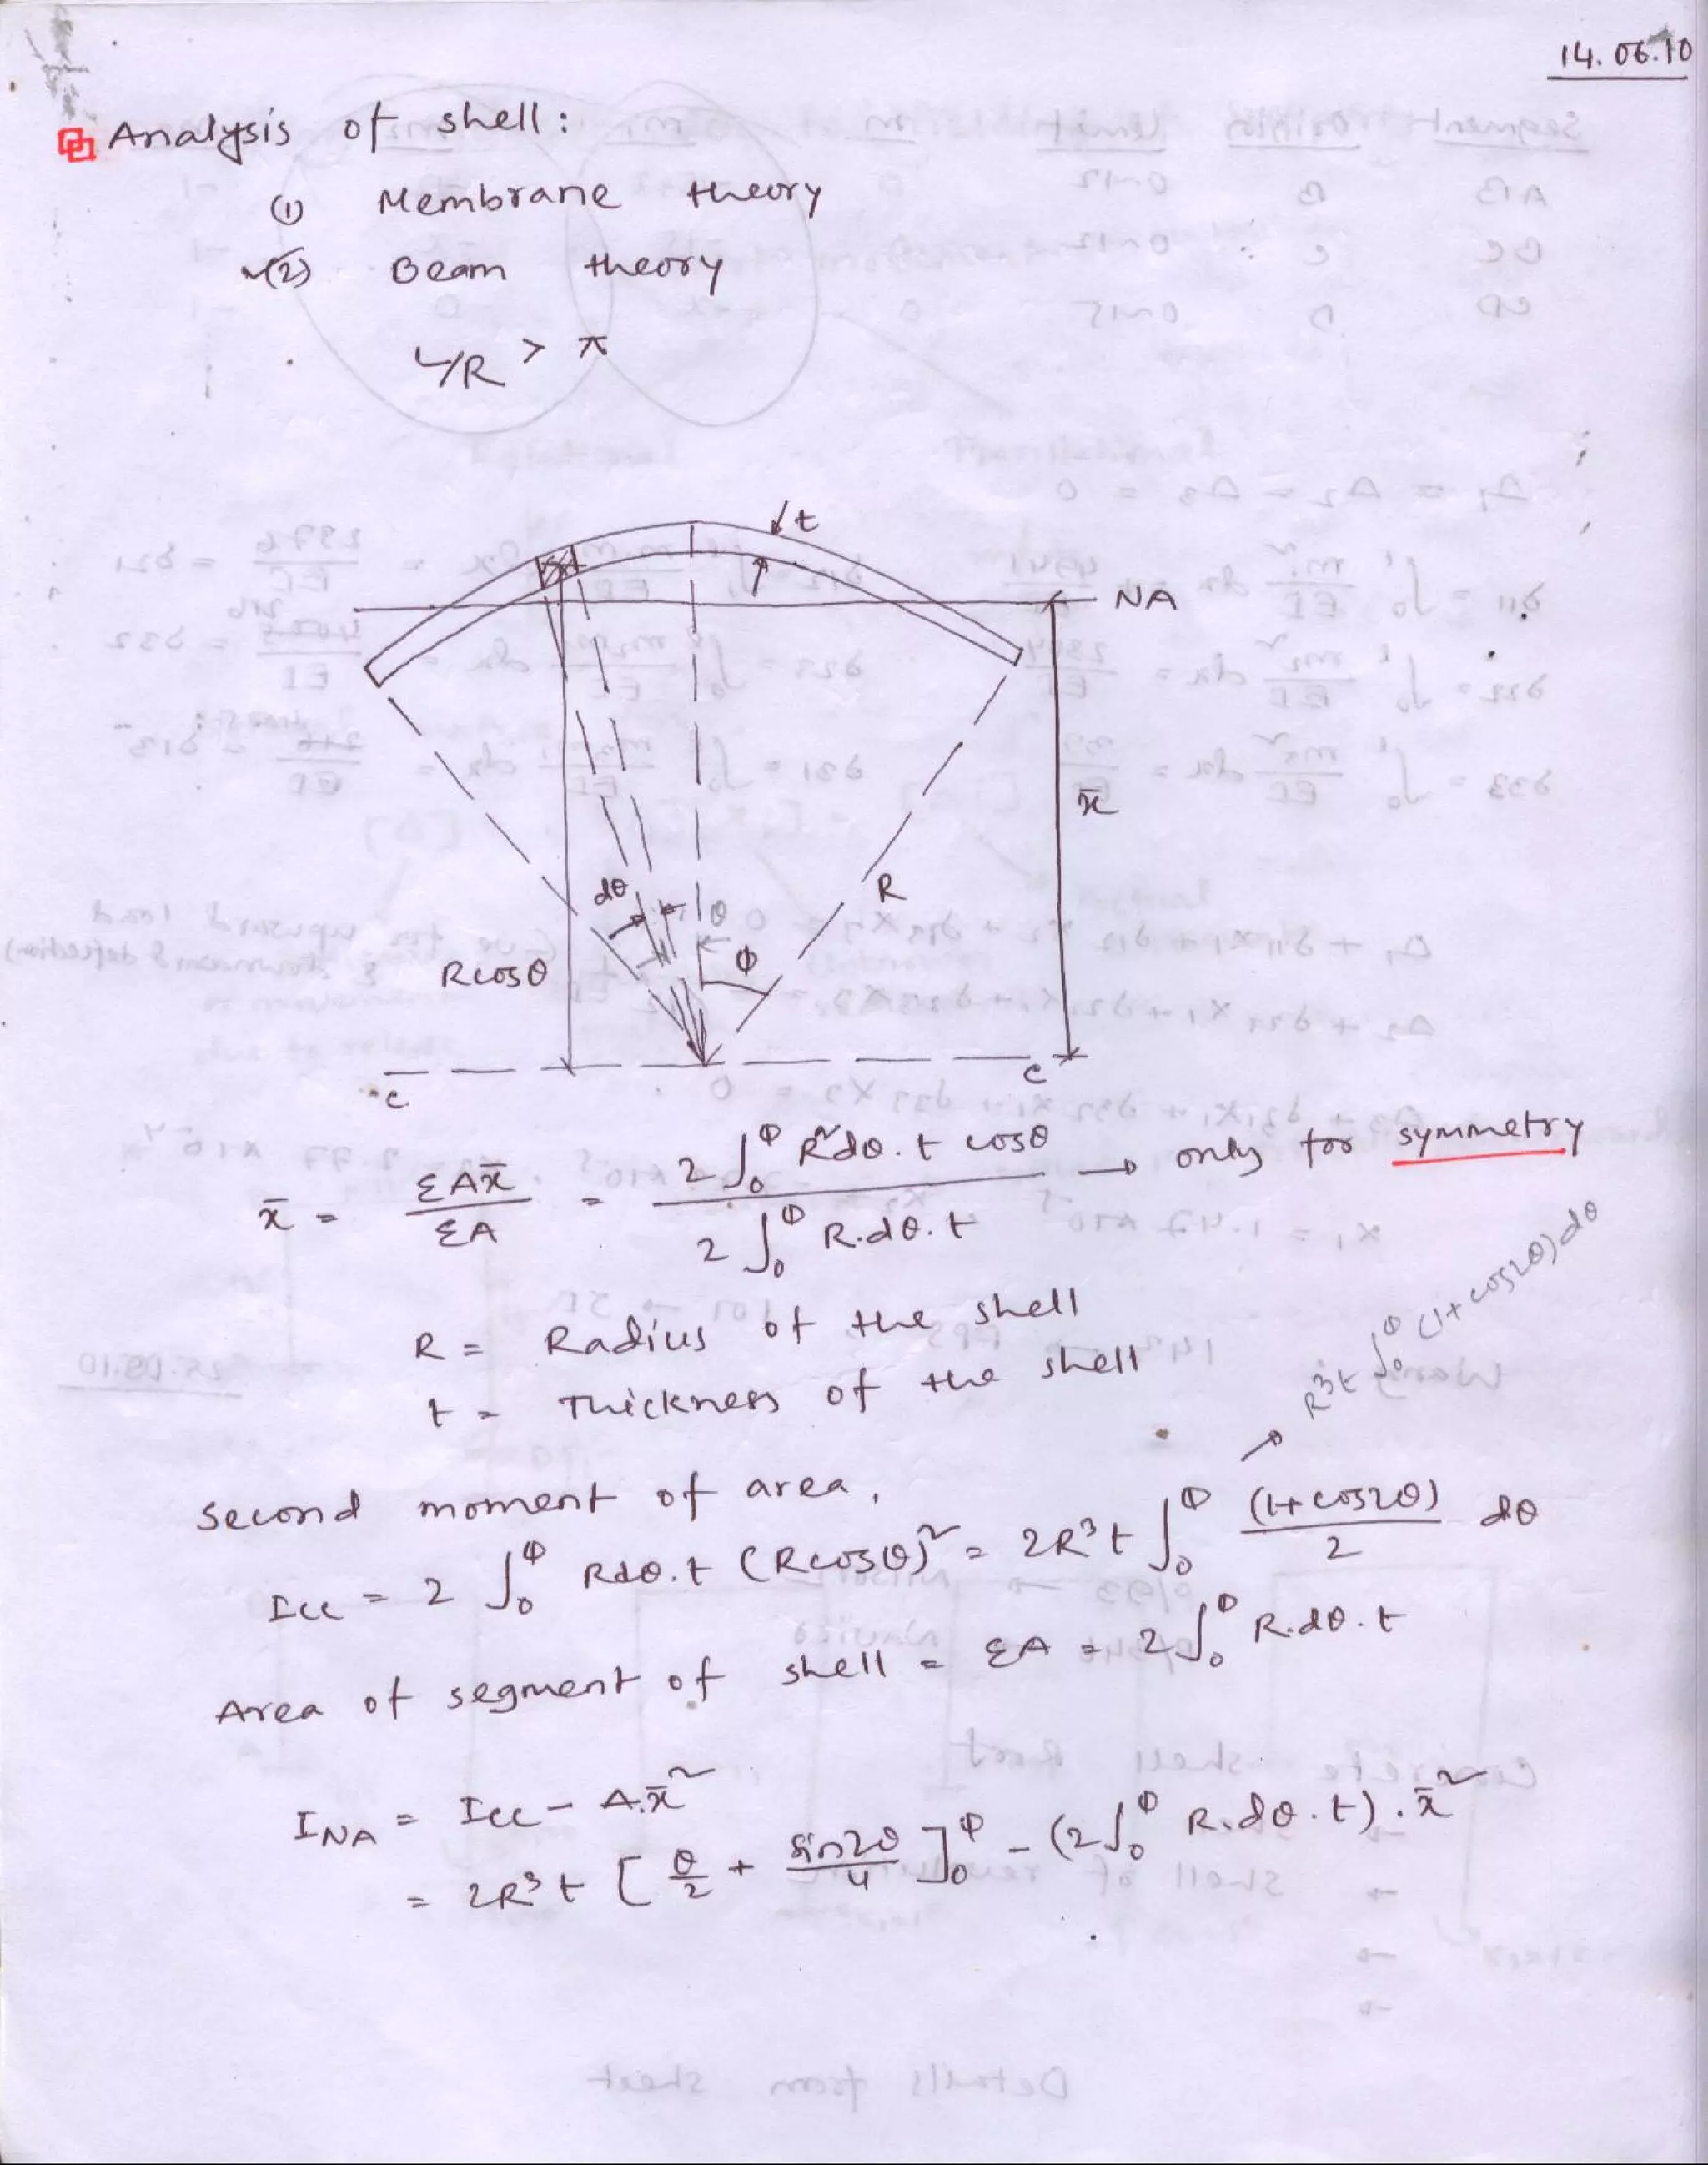 14.06.10
Analysis of shell:
(1) Membrane theory
✓(2) Beam theory
L/R > π
t
NA
x̄
dθ
θ
R
Rcosθ
Φ
c
c
x̄ = ΣAx̄ / ΣA = 2∫₀^Φ R²dθ.t cosθ / 2∫₀^Φ R.dθ.t → only for symmetry
R = Radius of the shell
t = Thickness of the shell
R³t ∫₀^Φ (1+cos2θ)dθ
Second moment of area,
Icc = 2 ∫₀^Φ Rdθ.t (Rcosθ)² = 2R³t ∫₀^Φ (1+cos2θ)/2 dθ
Area of segment of shell = ΣA = 2∫₀^Φ R.dθ.t
I_NA = Icc - A.x̄²
= 2R³t [θ/2 + sin2θ/4]₀^Φ - (2∫₀^Φ R.dθ.t).x̄²